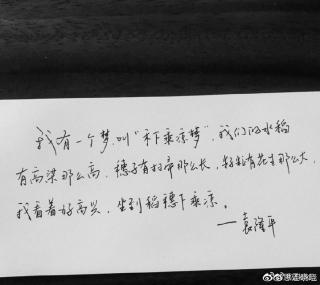 我有一个梦，叫“禾下乘凉梦”，我们的水稻
有高梁那么高，穗子有扫帚那么长，籽粒有花生那么大，
我看着好高兴，坐到稻穗下乘凉。
——袁隆平